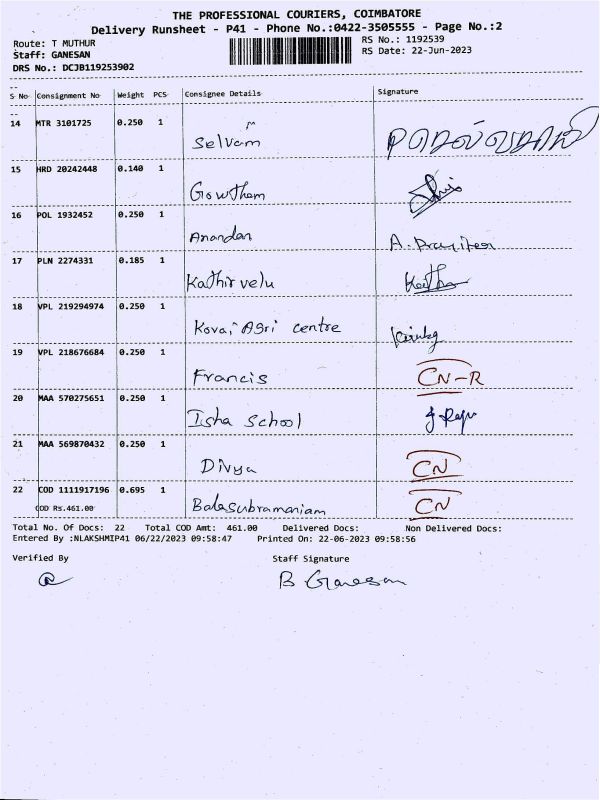 THE PROFESSIONAL COURIERS, COIMBATORE
Delivery Runsheet - P41 - Phone No.:0422-3505555 - Page No.:2
Route: T MUTHUR RS No.: 1192539
Staff: GANESAN RS Date: 22-Jun-2023
DRS No.: DCJB119253902
S No Consignment No Weight PCS Consignee Details Signature
14 MTR 3101725 0.250 1 Selvam
15 HRD 20242448 0.140 1 Gowtham
16 POL 1932452 0.250 1 Anandan
17 PLN 2274331 0.185 1 Kathirvelu
18 VPL 219294974 0.250 1 Kovai Agri centre
19 VPL 218676684 0.250 1 Francis CN-R
20 MAA 570275651 0.250 1 Isha School
21 MAA 569870432 0.250 1 Divya CN
22 COD 1111917196 0.695 1 Balasubramaniam CN
COD Rs.461.00
Total No. Of Docs: 22 Total COD Amt: 461.00 Delivered Docs: Non Delivered Docs:
Entered By :NLAKSHMIP41 06/22/2023 09:58:47 Printed On: 22-06-2023 09:58:56
Verified By Staff Signature
B Ganesan